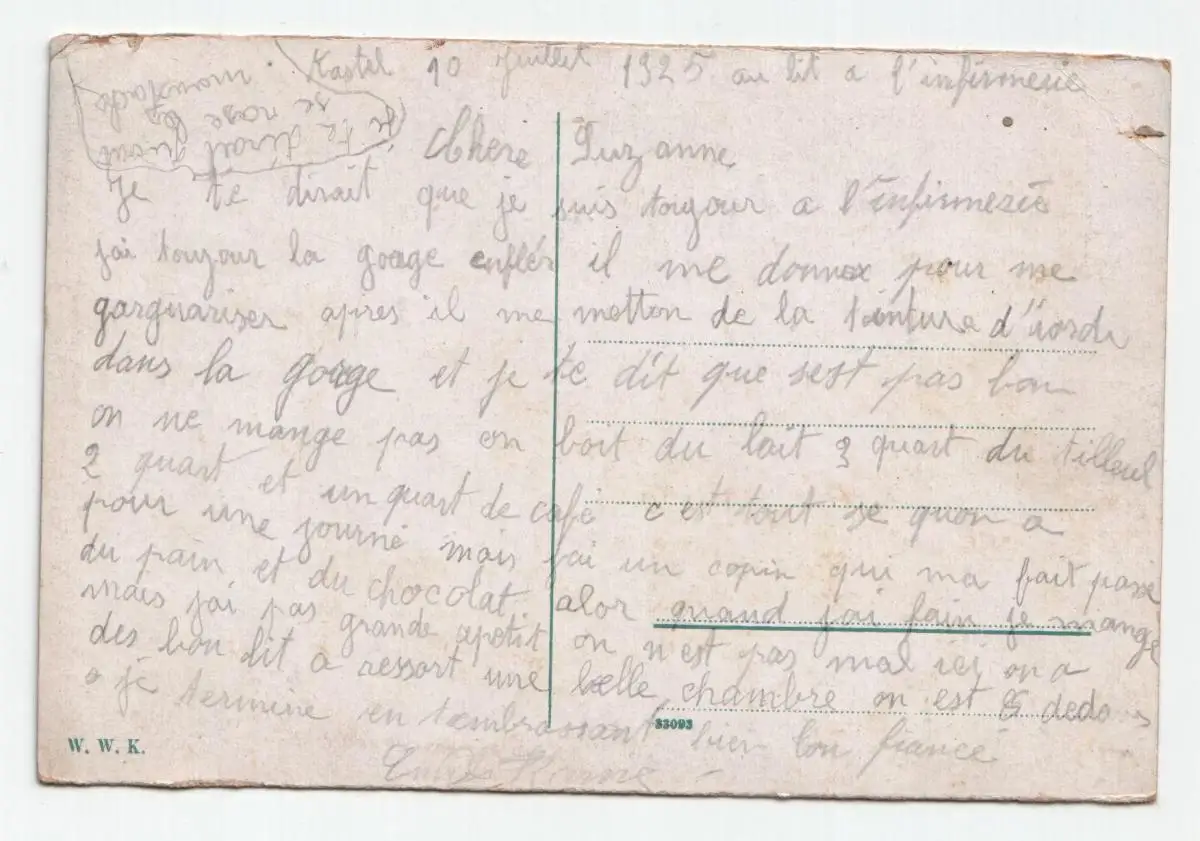 Kastel 10 Juillet 1925 au lit a l'infirmerie
je te dirait quont
se rase les
moustache
Chere Suzanne
Je te dirait que je suis toujour a l'infirmerie
jai toujour la goage enflér il me donnox pour me
garguariser apres il me metton de la tainture d'iorde
dans la goage et je te dit que sest pas bon
on ne mange pas on boit du lait 3 quart du tilleul
2 quart et un quart de cafe c'est tout se quon a
pour une journé mais jai un copin qui ma fait passe
du pain et du chocolat alor quand jai fain je mange
mais jai pas grande apetit on n'est pas mal ici on a
des bon lit a ressort une belle chambre on est 5 dedans
je termine en tembrassant bien ton fiancé
W. W. K.
33093